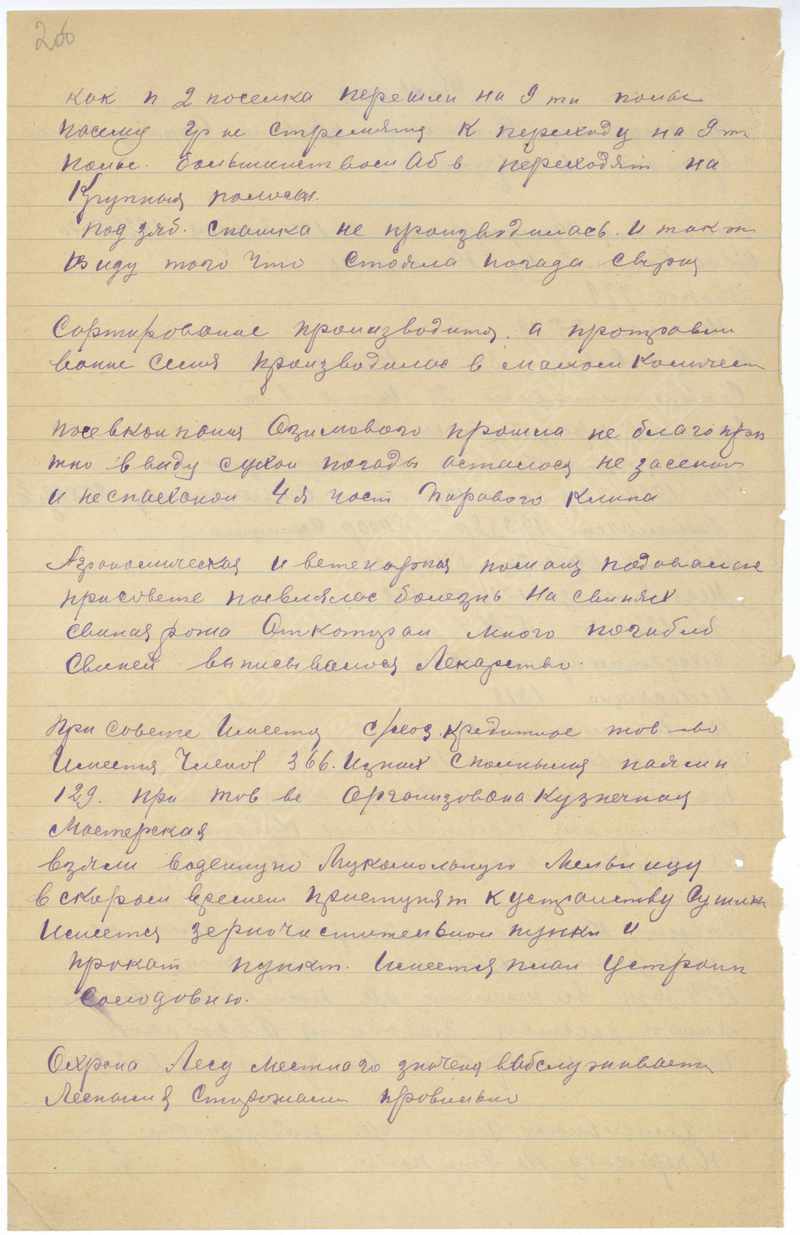 200
как п 2 поселка перешли на 9 ти полье
посему гр не стремятся к переходу на 9 т
полье. большинством Аб в переходят на
Крупныя полосы.
под зяб. спашка не производилась. и так ж
ввиду того что стояла погада сырая
Сортирование производится. а протравли
вание семя производилось в малом количест
посевкомпания Озимового прошла не благо прия
тно в виду сухой погады осталося не засеной
и неспаханой 4 я част парового клина
Агрономическая и ветенарная помащ подовалась
присовете появлялас болезнь на свинях
свиная рожа От которои много погибло
Свиней выписывалося Лекарство.
при совете Имеется с/хоз. кредитное тов-во
Имеется Членов 366. Изних с полными паями
129. при тов ве организована кузнечная
мастерская
взяли водениную Мукомольную мельницу
в скором времени приступят к устраиству Сушилки
Имеется зерноочистительной пункт и
прокат пункт. Имеется план Устроить
солодовню.
Охрана Леса местнаго значеня вабслуживается
Лесными Сторожами провильно